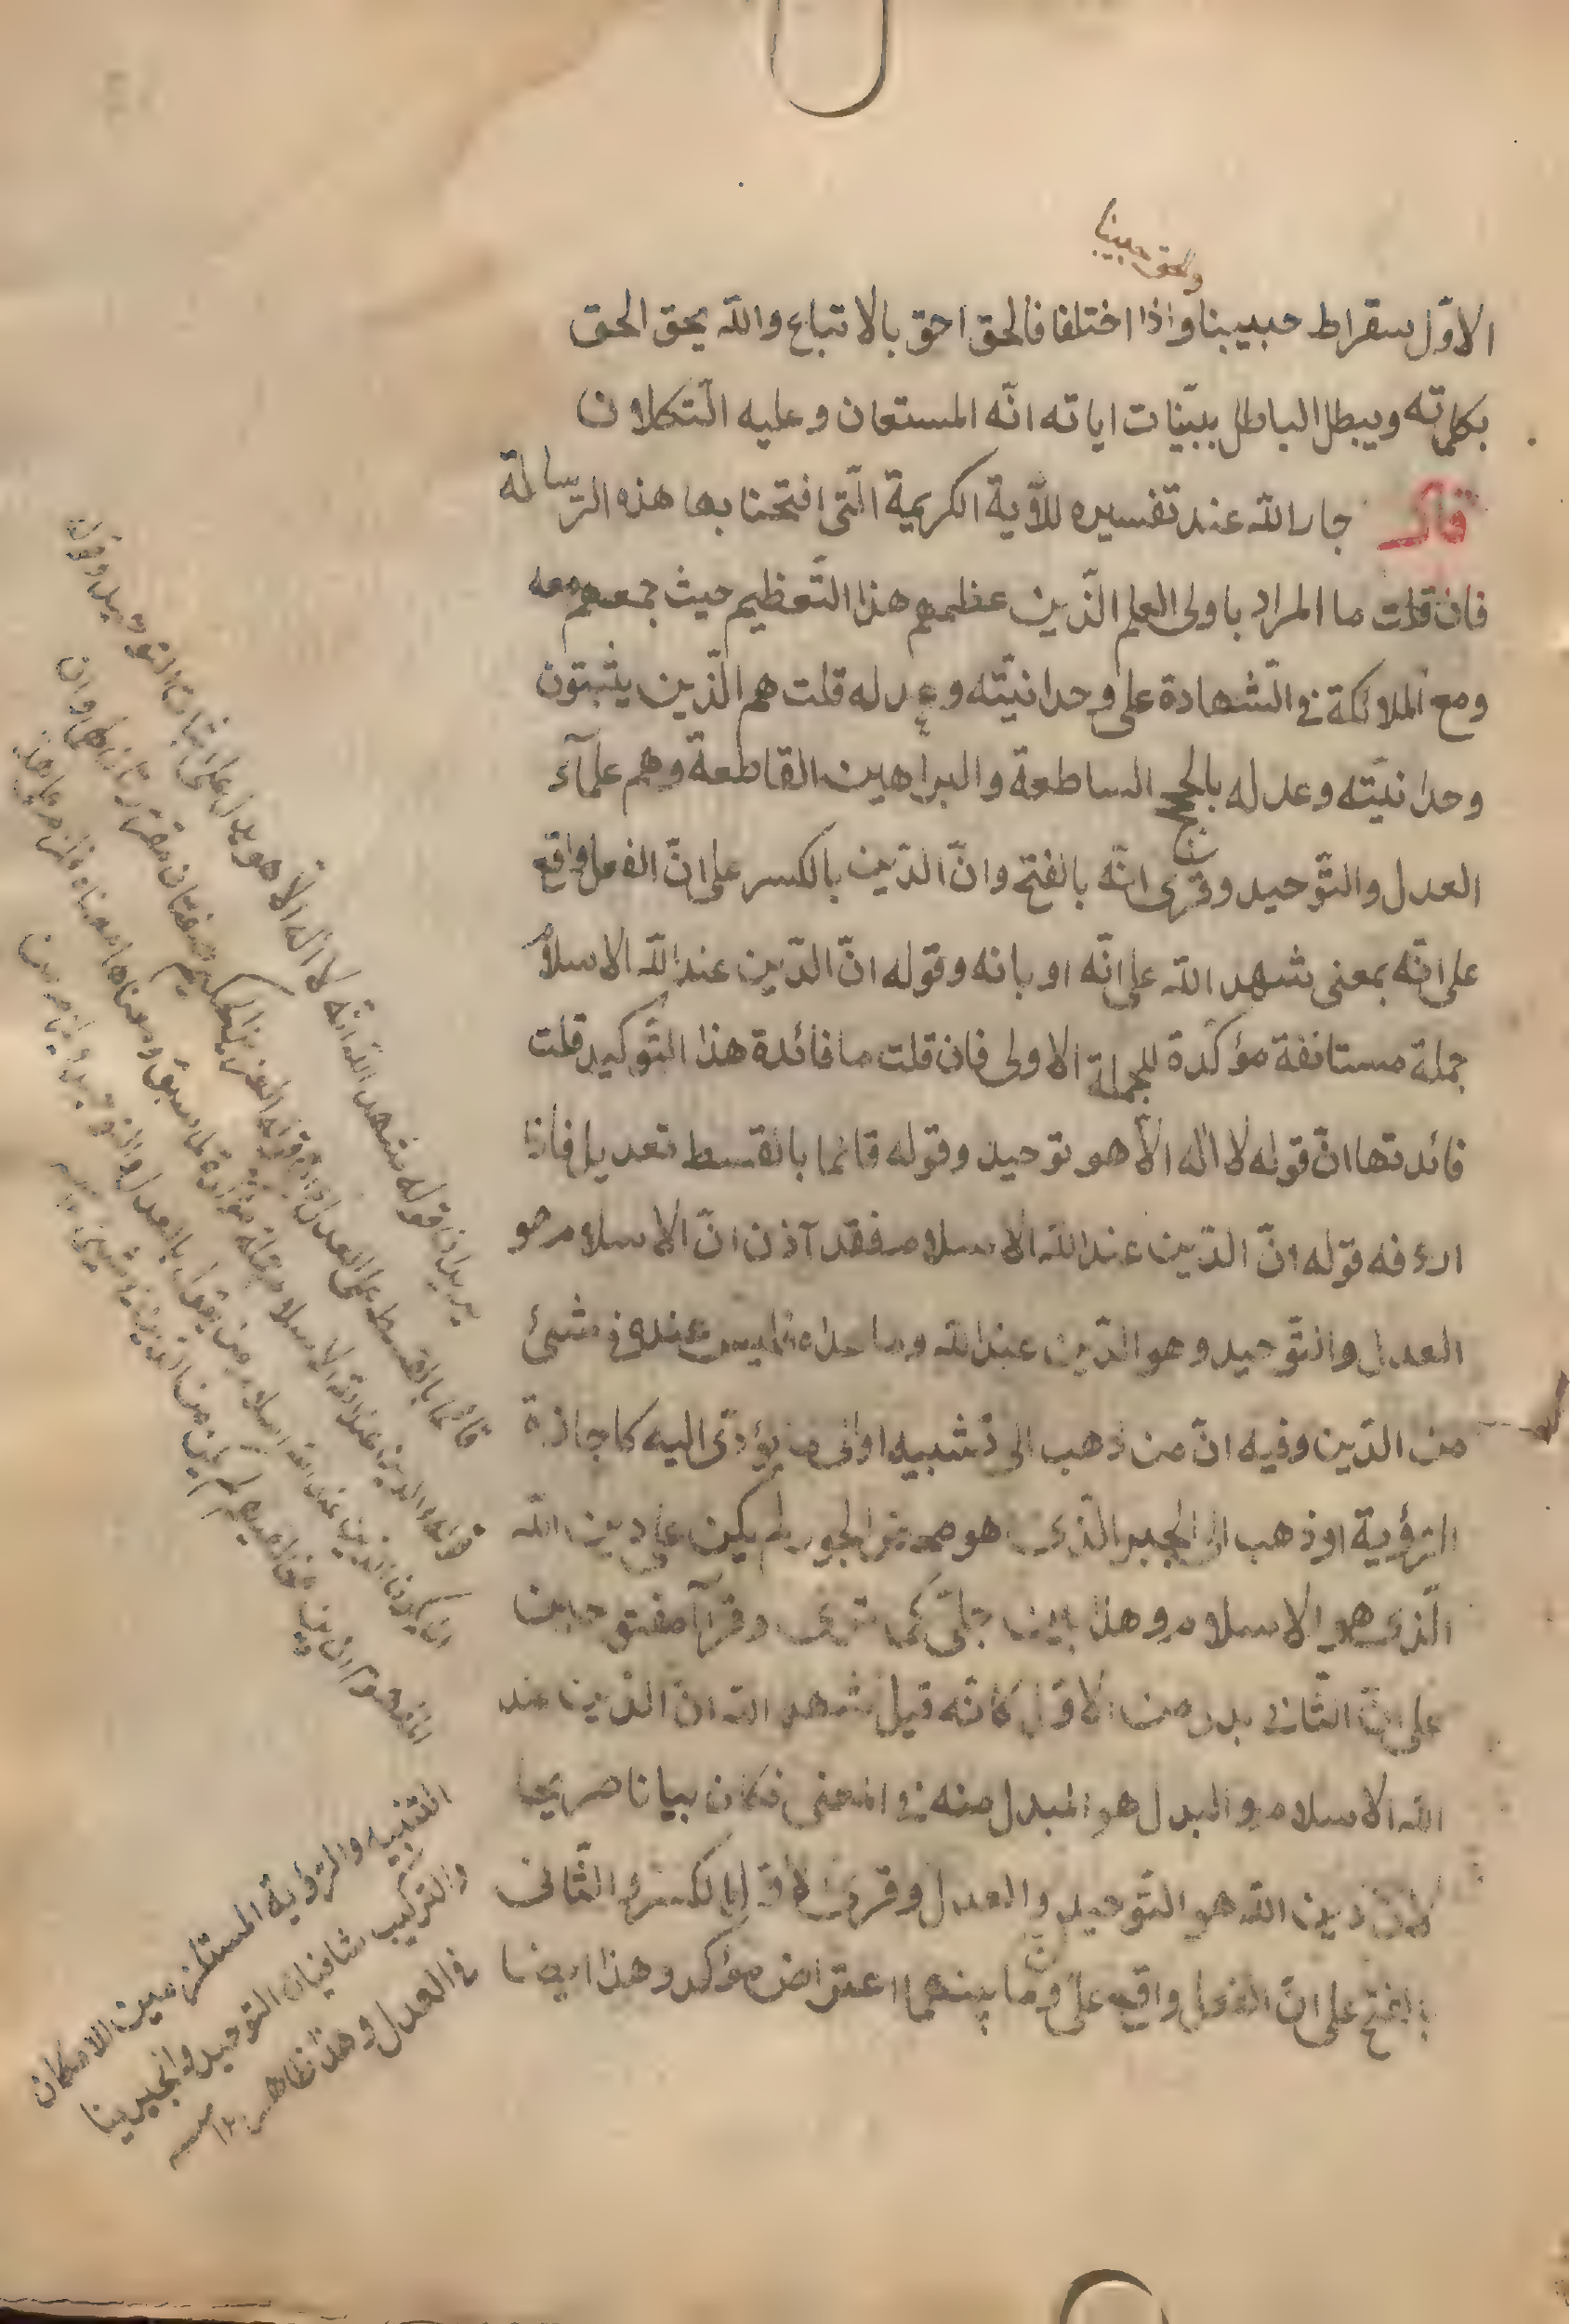 والحق حبيبنا
الاوّل سقراط حبيبنا واذا اختلفا فالحق احق بالاتباع والله يحق الحق
بكلماته ويبطل الباطل ببيّنات اياته انّه المستعان وعليه التّكلان
قال جار الله عند تفسيره للآية الكريمة الّتى افتتحنا بها هذه الرّسالة
فان قلت ما المراد باولى العلم الّذين عظمهم هذا التّعظيم حيث جمعهم معه
ومع الملائكة فى الشّهادة على وحدانيّته وعدله قلت هم الّذين يثبتون
وحدانيّته وعدله بالحجج الساطعة والبراهين القاطعة وهم علمآء
العدل والتّوحيد وقرئ انّه بالفتح وانّ الدّين بالكسر على انّ الفعل واقع
على انّه بمعنى شهد الله على انّه او بانه وقوله انّ الدّين عند الله الاسلام
جملة مستانفة مؤكّدة للجملة الاولى فان قلت ما فائدة هذا التّوكيد قلت
فائدتها انّ قوله لا اله الّا هو توحيد وقوله قائما بالقسط تعديل فاذا
اردفه قوله انّ الدّين عند الله الاسلام فقد آذن انّ الاسلام هو
العدل والتّوحيد وهو الدّين عند الله وما عداه فليس عنده فى شئ
من الدّين وفيه انّ من ذهب الى تشبيه او الى ما يؤدّى اليه كاجازة
الرّؤية او ذهب الى الجبر الّذى هو محض الجور لم يكن على دين الله
الّذى هو الاسلام وهذا بين جلىّ كما ترى وقرآ مفتوحين
على انّ الثّانى بدل من الاوّل كانّه قيل شهد الله انّ الدّين عند
الله الاسلام والبدل هو المبدل منه فى المعنى فكان بيانا صريحا
لانّ دين الله هو التّوحيد والعدل وقرئ الاوّل بالكسر والثّانى
بالفتح على انّ الفعل واقع على انّ وما بينهما اعتراض مؤكد وهذا ايضا
يريد ان قوله شهد الله انّه لا اله الّا هو يدل على اثبات التوحيد وقوله
قائما بالقسط على العدل وقوله العزيز الحكيم صفتان
انّ الدين عند الله الاسلام جملة
الدين عند الله الاسلام من يقول بالعدل والتوحيد
المفهوم
التشبيه والرّؤية المستلزمين للامكان
والتركيب منافيان التوحيد والجبر ينا
فى العدل وهذا ظاهر ١٢ منه